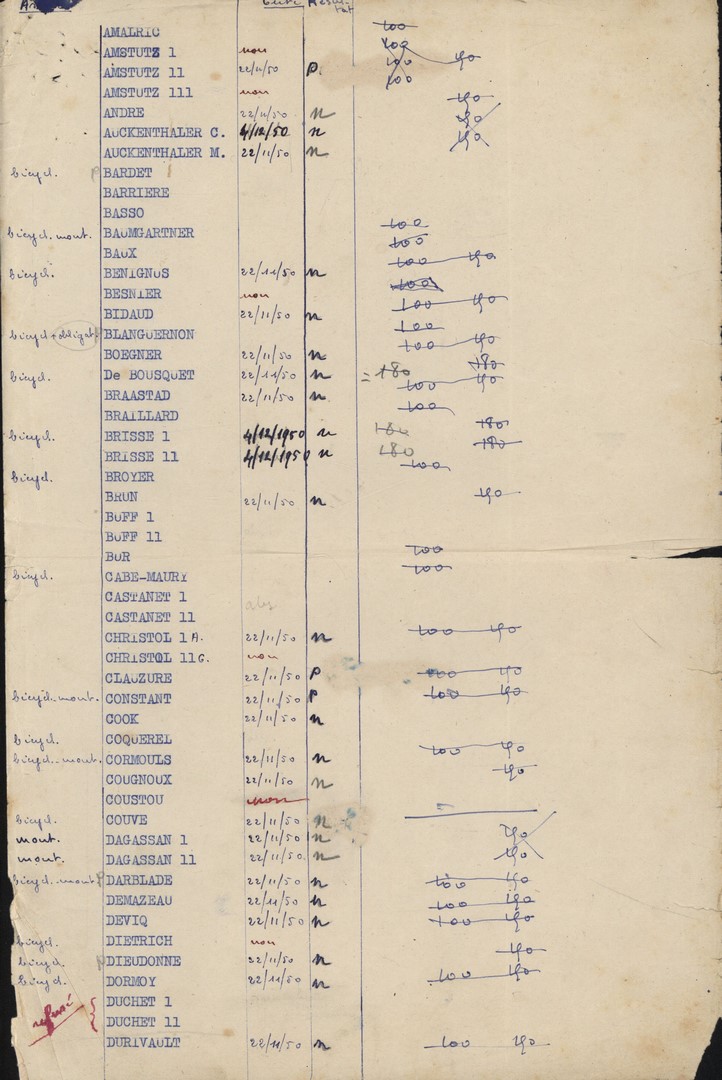 AMALRIC 100
AMSTUTZ 1 non 100
AMSTUTZ 11 22/11/50 P. 100 190
AMSTUTZ 111 non 100
ANDRE 22/11/50 n 190
AUCKENTHALER C. 4/12/50 n 190
AUCKENTHALER M. 22/11/50 n 190
bicycl. BARDET
BARRIERE
BASSO
bicycl. mont. BAUMGARTNER 100
BAUX 100
bicycl. BENIGNUS 22/11/50 n 100 190
BESNIER non 100
BIDAUD 22/11/50 n 100 190
bicycl. obligat BLANGUERNON 100
BOEGNER 22/11/50 n 100 190
bicycl. De BOUSQUET 22/11/50 n = 180 180
BRAASTAD 22/11/50 n 100 190
BRAILLARD 100
bicycl. BRISSE 1 4/12/1950 n 180 180
BRISSE 11 4/12/1950 n 180 180
bicycl. BROYER 100
BRUN 22/11/50 n 190
BUFF 1
BUFF 11
BUR 100
bicycl. CABE-MAURY 100
CASTANET 1 abs
CASTANET 11
CHRISTOL 1 A. 22/11/50 n 100 190
CHRISTOL 11 G. non
CLAUZURE 22/11/50 P 100 190
bicycl. mont. CONSTANT 22/11/50 P 100 190
COOK 22/11/50 n
bicycl. COQUEREL
bicycl. mont. CORMOULS 22/11/50 n 100 190
COUGNOUX 22/11/50 n 190
COUSTOU non
bicycl. COUVE 22/11/50 n
mont. DAGASSAN 1 22/11/50 n 190
mont. DAGASSAN 11 22/11/50. n 190
bicycl. mont DARBLADE 22/11/50 n 100 190
DEMAZEAU 22/11/50 n 100 190
DEVIQ 22/11/50 n 100 190
bicycl. DIETRICH non
bicycl. DIEUDONNE 22/11/50 n 190
bicycl. DORMOY 22/11/50 n 100 190
refusé DUCHET 1
DUCHET 11
DURIVAULT 22/11/50 n 100 190